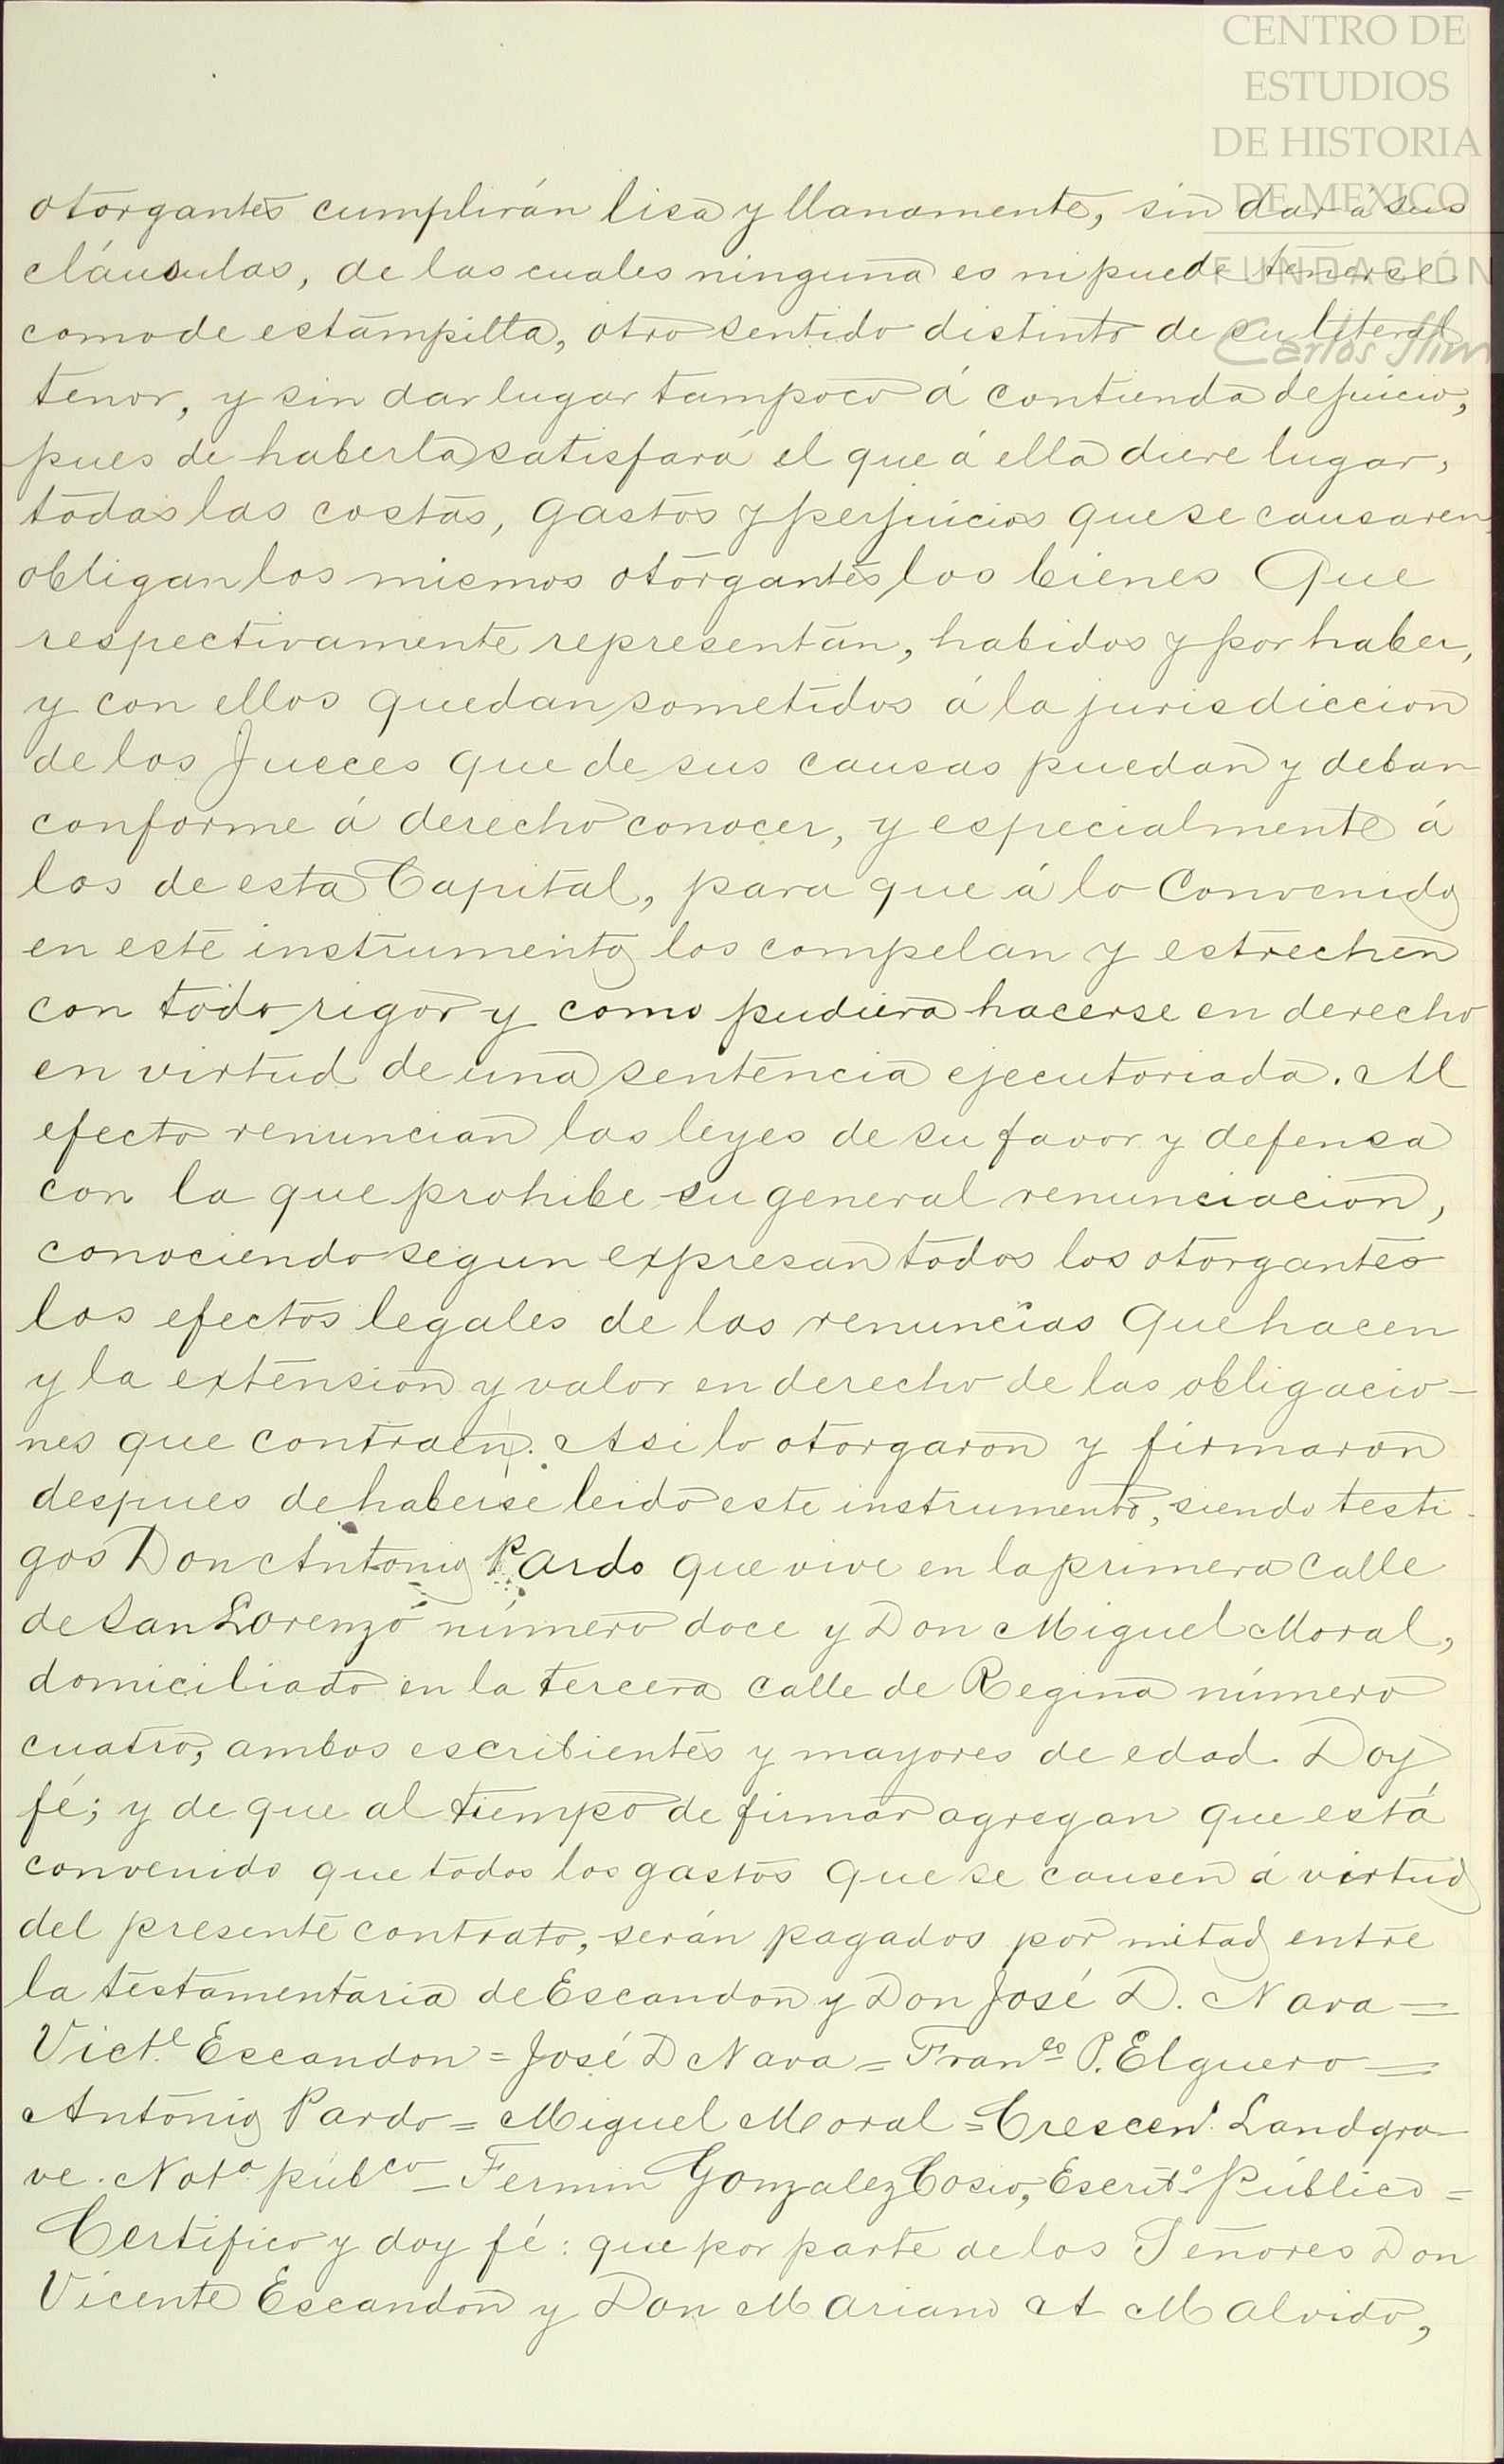 CENTRO DE
ESTUDIOS
DE HISTORIA
DE MEXICO
FUNDACIÓN
Carlos Slim
otorgantes cumplirán lisa y llanamente, sin dar á sus
cláusulas, de las cuales ninguna es ni puede tenerse
como de estampilla, otro sentido distinto de su literal
tenor, y sin dar lugar tampoco á contienda de juicio,
pues de haberla satisfará el que á ella diere lugar,
todas las costas, gastos y perjuicios que se causaren
obligan los mismos otorgantes los bienes Que
respectivamente representan, habidos y por haber,
y con ellos quedan sometidos á la jurisdiccion
de los Jueces que de sus causas puedan y deban
conforme á derecho conocer, y especialmente á
los de esta Capital, para que á lo Convenido
en este instrumento los compelan y estrechen
con todo rigor y como pudiera hacerse en derecho
en virtud de una sentencia ejecutoriada. Al
efecto renuncian las leyes de su favor y defensa
con la que prohibe su general renunciacion,
conociendo segun expresan todos los otorgantes
los efectos legales de las renuncias Que hacen
y la extension y valor en derecho de las obligacio-
nes que contraen. Asi lo otorgaron y firmaron
despues de haberse leido este instrumento, siendo testi-
gos Don Antonio Pardo que vive en la primera Calle
de San Lorenzo número doce y Don Miguel Moral,
domiciliado en la tercera calle de Regina número
cuatro, ambos escribientes y mayores de edad. Doy
fé; y de que al tiempo de firmar agregan que está
convenido que todos los gastos que se causen á virtud
del presente contrato, serán pagados por mitad entre
la testamentaria de Escandon y Don José D. Nava =
Victe. Escandon = José D Nava = Franco P. Elguero =
Antonio Pardo = Miguel Moral = Crescend. Landgra-
ve. Nota púbco = Fermin Gonzalez Cosio, Escrito. Público =
Certifico y doy fé: que por parte de los Señores Don
Vicente Escandon y Don Mariano A Malvido,